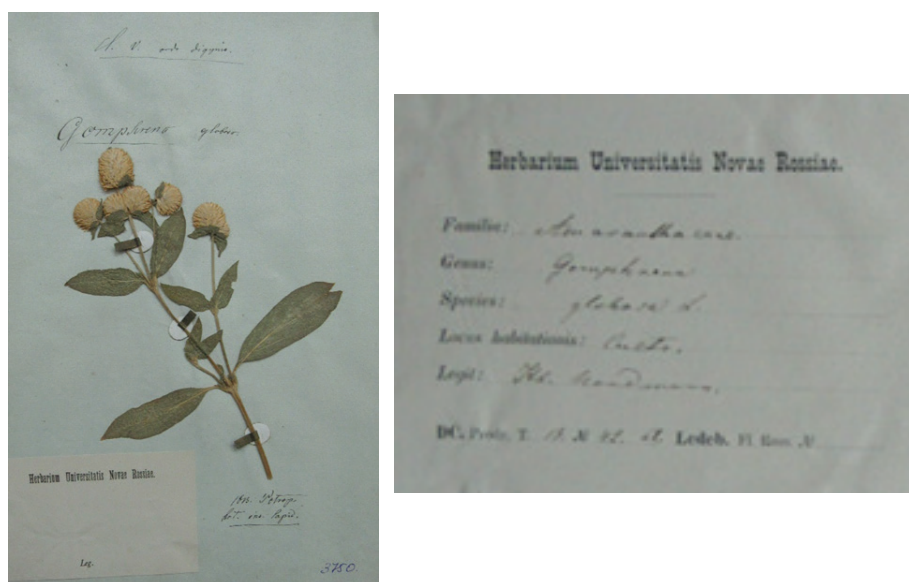 Cl. V. ordo digynia.
Gomphrena globos.
Herbarium Universitatis Novae Rossiae.
Leg.
hort. 
3750.
Herbarium Universitatis Novae Rossiae.
Familia: Amaranthaceae.
Genus: Gomphrena
Species: globosa L.
Locus habitationis: Culta.
Legit: Nordmann.
DC. Prodr. T. 13. № 42. Ledeb. Fl. Ross. №